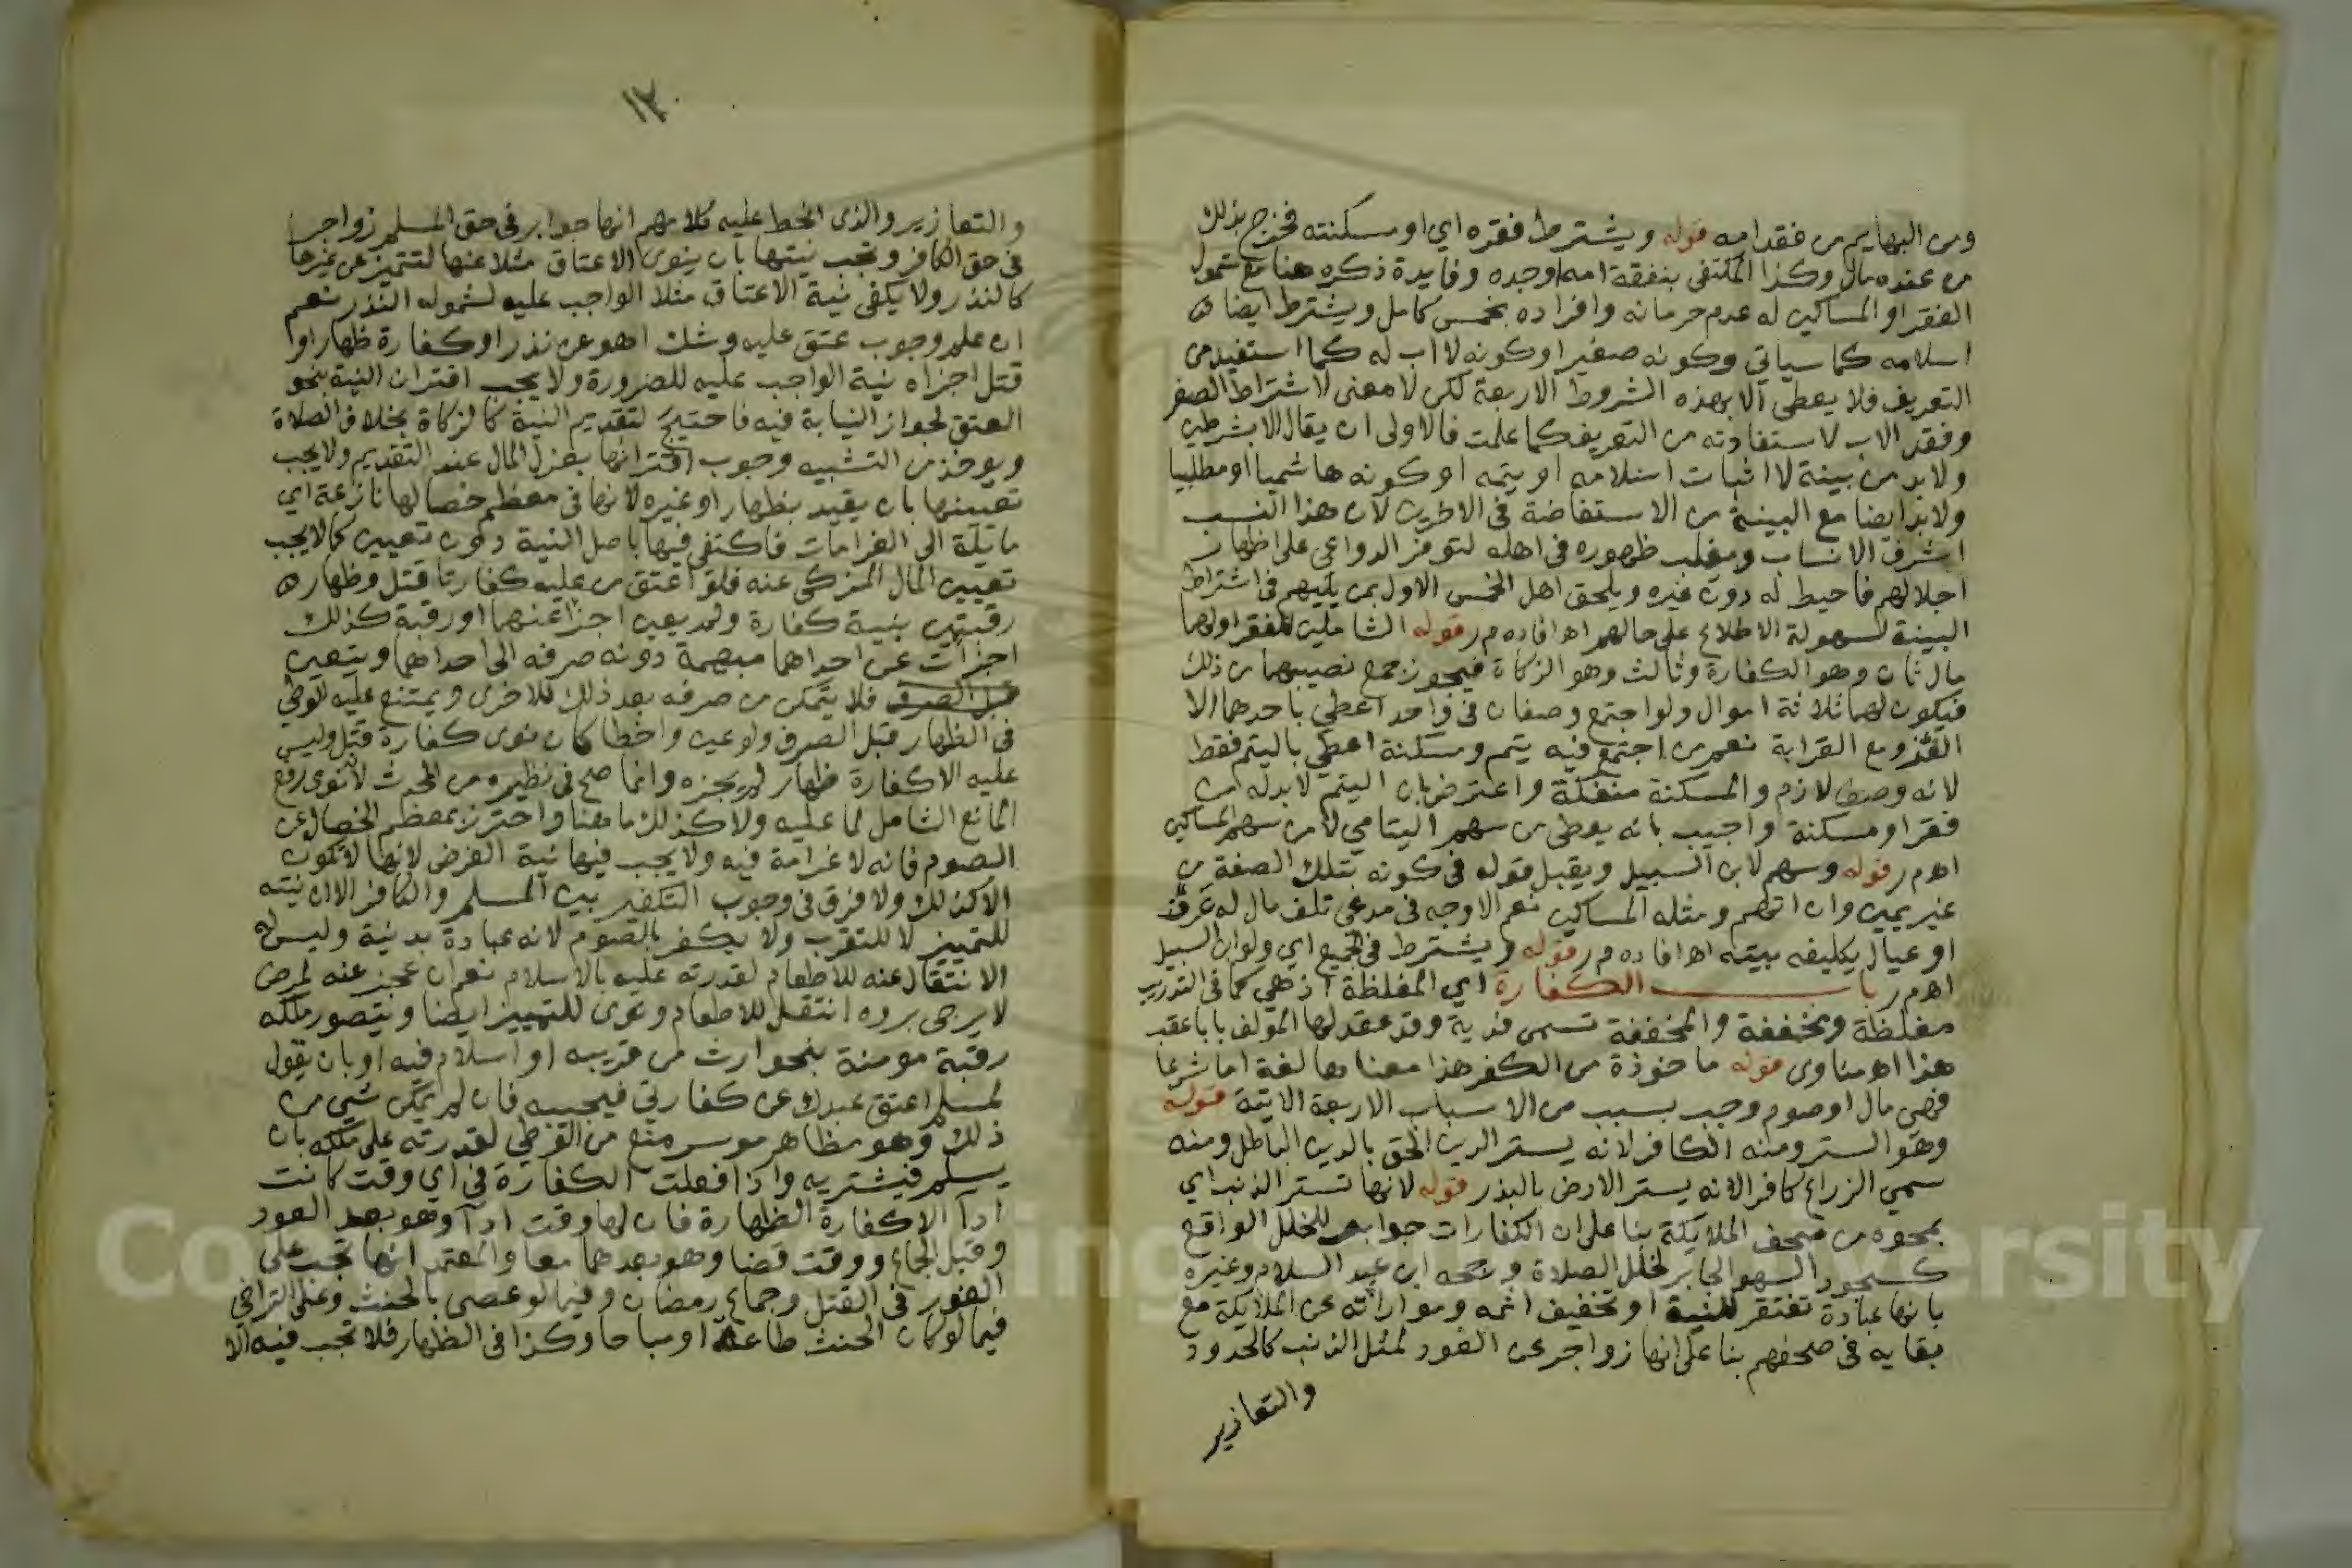 ومن البهايم من فقد امه قوله ويشترط فقره اي او مسكنته فخرج بذلك
من عنده مال وكذا المكتفي بنفقة امه او جده وفايدة ذكره هنا مع شمول
الفقرا والمساكين له عدم حرمانه وافراده بخمس كامل ويشترط ايضا
اسلامه كما سياتي وكونه صغيرا وكونه لا اب له كما استفيد من
التعريف فلا يعطى الا بهذه الشروط الاربعة لكن لا معنى لاشتراط الصغر
وفقد الاب لاستفادته من التعريف كما علمت فالاولى ان يقال الا بشرطين
ولا بد من بينة لا اثبات اسلامه او يتمه او كونه هاشميا او مطلبيا
ولا بد ايضا مع البينة من الاستفاضة في الاخرين لان هذا النسب
اشرف الانساب ويغلب ظهوره في اهله لتوفر الدواعي على اظهار
اجلالهم فاحيط له دون غيره ويلحق اهل الخمس الاول بمن يليهم في اشتراط
البينة لسهولة الاطلاع على حالهم اه افاده م ر قوله الشاملين للفقرا ولهما
مال ثان وهو الكفارة وثالث وهو الزكاة فيجوز جمع نصيبهما من ذلك
فيكون لهما ثلاثة اموال ولو اجتمع وصفان في واحد اعطي باحدهما الا
الغزو مع القرابة نعم من اجتمع فيه يتم ومسكنة اعطي باليتم فقط
لانه وصف لازم والمسكنة منفكة واعترض بان اليتم لا بد له من
فقر او مسكنة واجيب بانه يعطى من سهم اليتامي لا من سهم المساكين
اه م ر قوله وسهم لابن السبيل ويقبل قوله في كونه بتلك الصفة من
غير يمين وان اتهم ومثله المساكين نعم الاوجه في مدعي تلف مال له عرف
او عيال يكليفه بينه اه افاده م ر قوله ويشترط في الجميع اي ولو ابن السبيل
اه م ر باب الكفارة اي المغلظة اذ هي كما في التدريب
مغلظة ومخففة والمخففة تسمى فدية وقد عقد لها المؤلف بابا عقب
هذا اه مناوى قوله ماخوذة من الكفر هذا معناها لغة اما شرعا
فهي مال او صوم وجب بسبب من الاسباب الاربعة الاتية قوله
وهو الستر ومنه الكافر لانه يستر الدين الحق بالدين الباطل ومنه
سمي الزراع كافرا لانه يستر الارض بالبذر قوله لانها تستر الذنب اي
بمحوه من صحف الملايكة بنا على ان الكفارات جوابر للخلل الواقع
كسجود السهو الجابر لخلل الصلاة ورجحه ابن عبد السلام وغيره
بانها عبادة تفتقر للنية او تخفيف اثمه وموارته عن الملايكة مع
بقايه في صحفهم بنا على انها زواجر عن العود لمثل الذنب كالحدود
والتعازير
١٢٠
والتعازير والذى انحط عليه كلامهم انها جوابر في حق المسلم زواجر
في حق الكافر وتجب نيتها بان ينوى الاعتاق مثلا عنها لتتميز عن غيرها
كالنذر ولا يكفي نية الاعتاق مثلا الواجب عليه لشموله النذر نعم
ان علم وجوب عتق عليه وشك اهو عن نذر او كفارة ظهار او
قتل اجزاه نية الواجب عليه للضرورة ولا يجب اقتران النية بنحو
العتق لجواز النيابة فيه فاحتيج لتقديم النية كالزكاة بخلاف الصلاة
ويوخذ من التشبيه وجوب اقترانها بعزل المال عند التقديم ولا يجب
تعيينها بان يقيد بظهار او غيره لانها في معظم خصالها نازعة اي
مايلة الى الغرامات فاكتفي فيها باصل النية دون تعيين كما لا يجب
تعيين المال المزكى عنه فلو اعتق من عليه كفارتا قتل وظهار
رقبتين بنية كفارة ولم يعين اجزا عنهما او رقبة كذلك
اجزات عن احداهما مبهمة دونه صرفه الى احداهما ويتعين
قبل الصرف فلا يتمكن من صرفه بعد ذلك للاخرى ويمتنع عليه الوطئ
في الظهار قبل الصرف ولو عين واخطا كان نوى كفارة قتل وليس
عليه الا كفارة ظهار لم يجزه وانما صح في نظيره من الحدث لانه نوى رفع
المانع الشامل لما عليه ولا كذلك ما هنا واحترز بمعظم الخصال عن
الصوم فانه لا غرامة فيه ولا يجب فيها نية الفرض لانها لا تكون
الا كذلك ولا فرق في وجوب التكفير بين المسلم والكافر الا ان نيته
للتمييز لا للتقرب ولا يكفر بالصوم لانه عبادة بدنية وليس له
الانتقال عنه للاطعام لقدرته عليه بالاسلام نعم ان عجز عنه لمرض
لا يرجى بروه انتقل للاطعام ونوى للتمييز ايضا ويتصور ملكه
رقبة مومنة بنحو ارث من قريبه او اسلام قنه او بان يقول
لمسلم اعتق عبدك عن كفارتي فيجيبه فان لم يمكن شي من
ذلك وهو مظاهر موسر منع من الوطئ لقدرته على ملكه بان
يسلم فيشتريه واذا فعلت الكفارة في اي وقت كانت
ادآ الا كفارة الظهارة فان لها وقت ادآ وهو بعد العود
وقبل الجماع ووقت قضا وهو بعدهما معا والمعتمد انها تجب على
الفور في القتل وجماع رمضان وفيما لو عصى بالحنث وعلى التراخي
فيما لو كان الحنث طاعة او مباحا وكذا في الظهار فلا تجب فيه الا
Copyright King Saud University